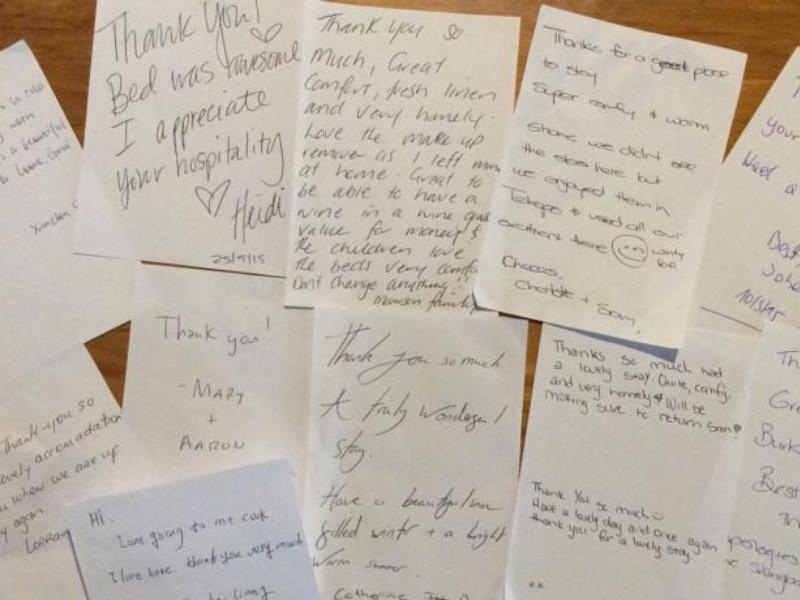 Thank you!
Bed was awesome
I appreciate
your hospitality
Heidi
25/9/15
Thank you so
much, Great
comfort, fresh linen
and very homely.
Love the make up
remover as I left mine
at home. Great to
be able to have a
wine in a wine glass
value for money &
the children love
the beds very comfy
Dont change anything!!
family
Thanks for a great place
to stay
Super comfy & warm.
Shame we didn't see
the stars here but
we enjoyed them in
Tekapo & used all our
excitment there
Cheers,
Charlotte + Sam,
your
10/5/15
Thank you!
- MARY
+
AARON
Thank you so much
A truly wonderful
stay.
Have a beautiful snow
filled winter + a bright
warm summer.
Catherine
Thanks so much had
a lovely stay. Quite, comfy,
and very homely & Will be
making sure to return soon!
Thank You so much
Have a lovely day and once again
thank you for a lovely stay
xx
Thank you so
lovely accomadation
when we are up
again
Hi.
I am going to mt cook.
I love here. thank you very much
Th
Gre
Best